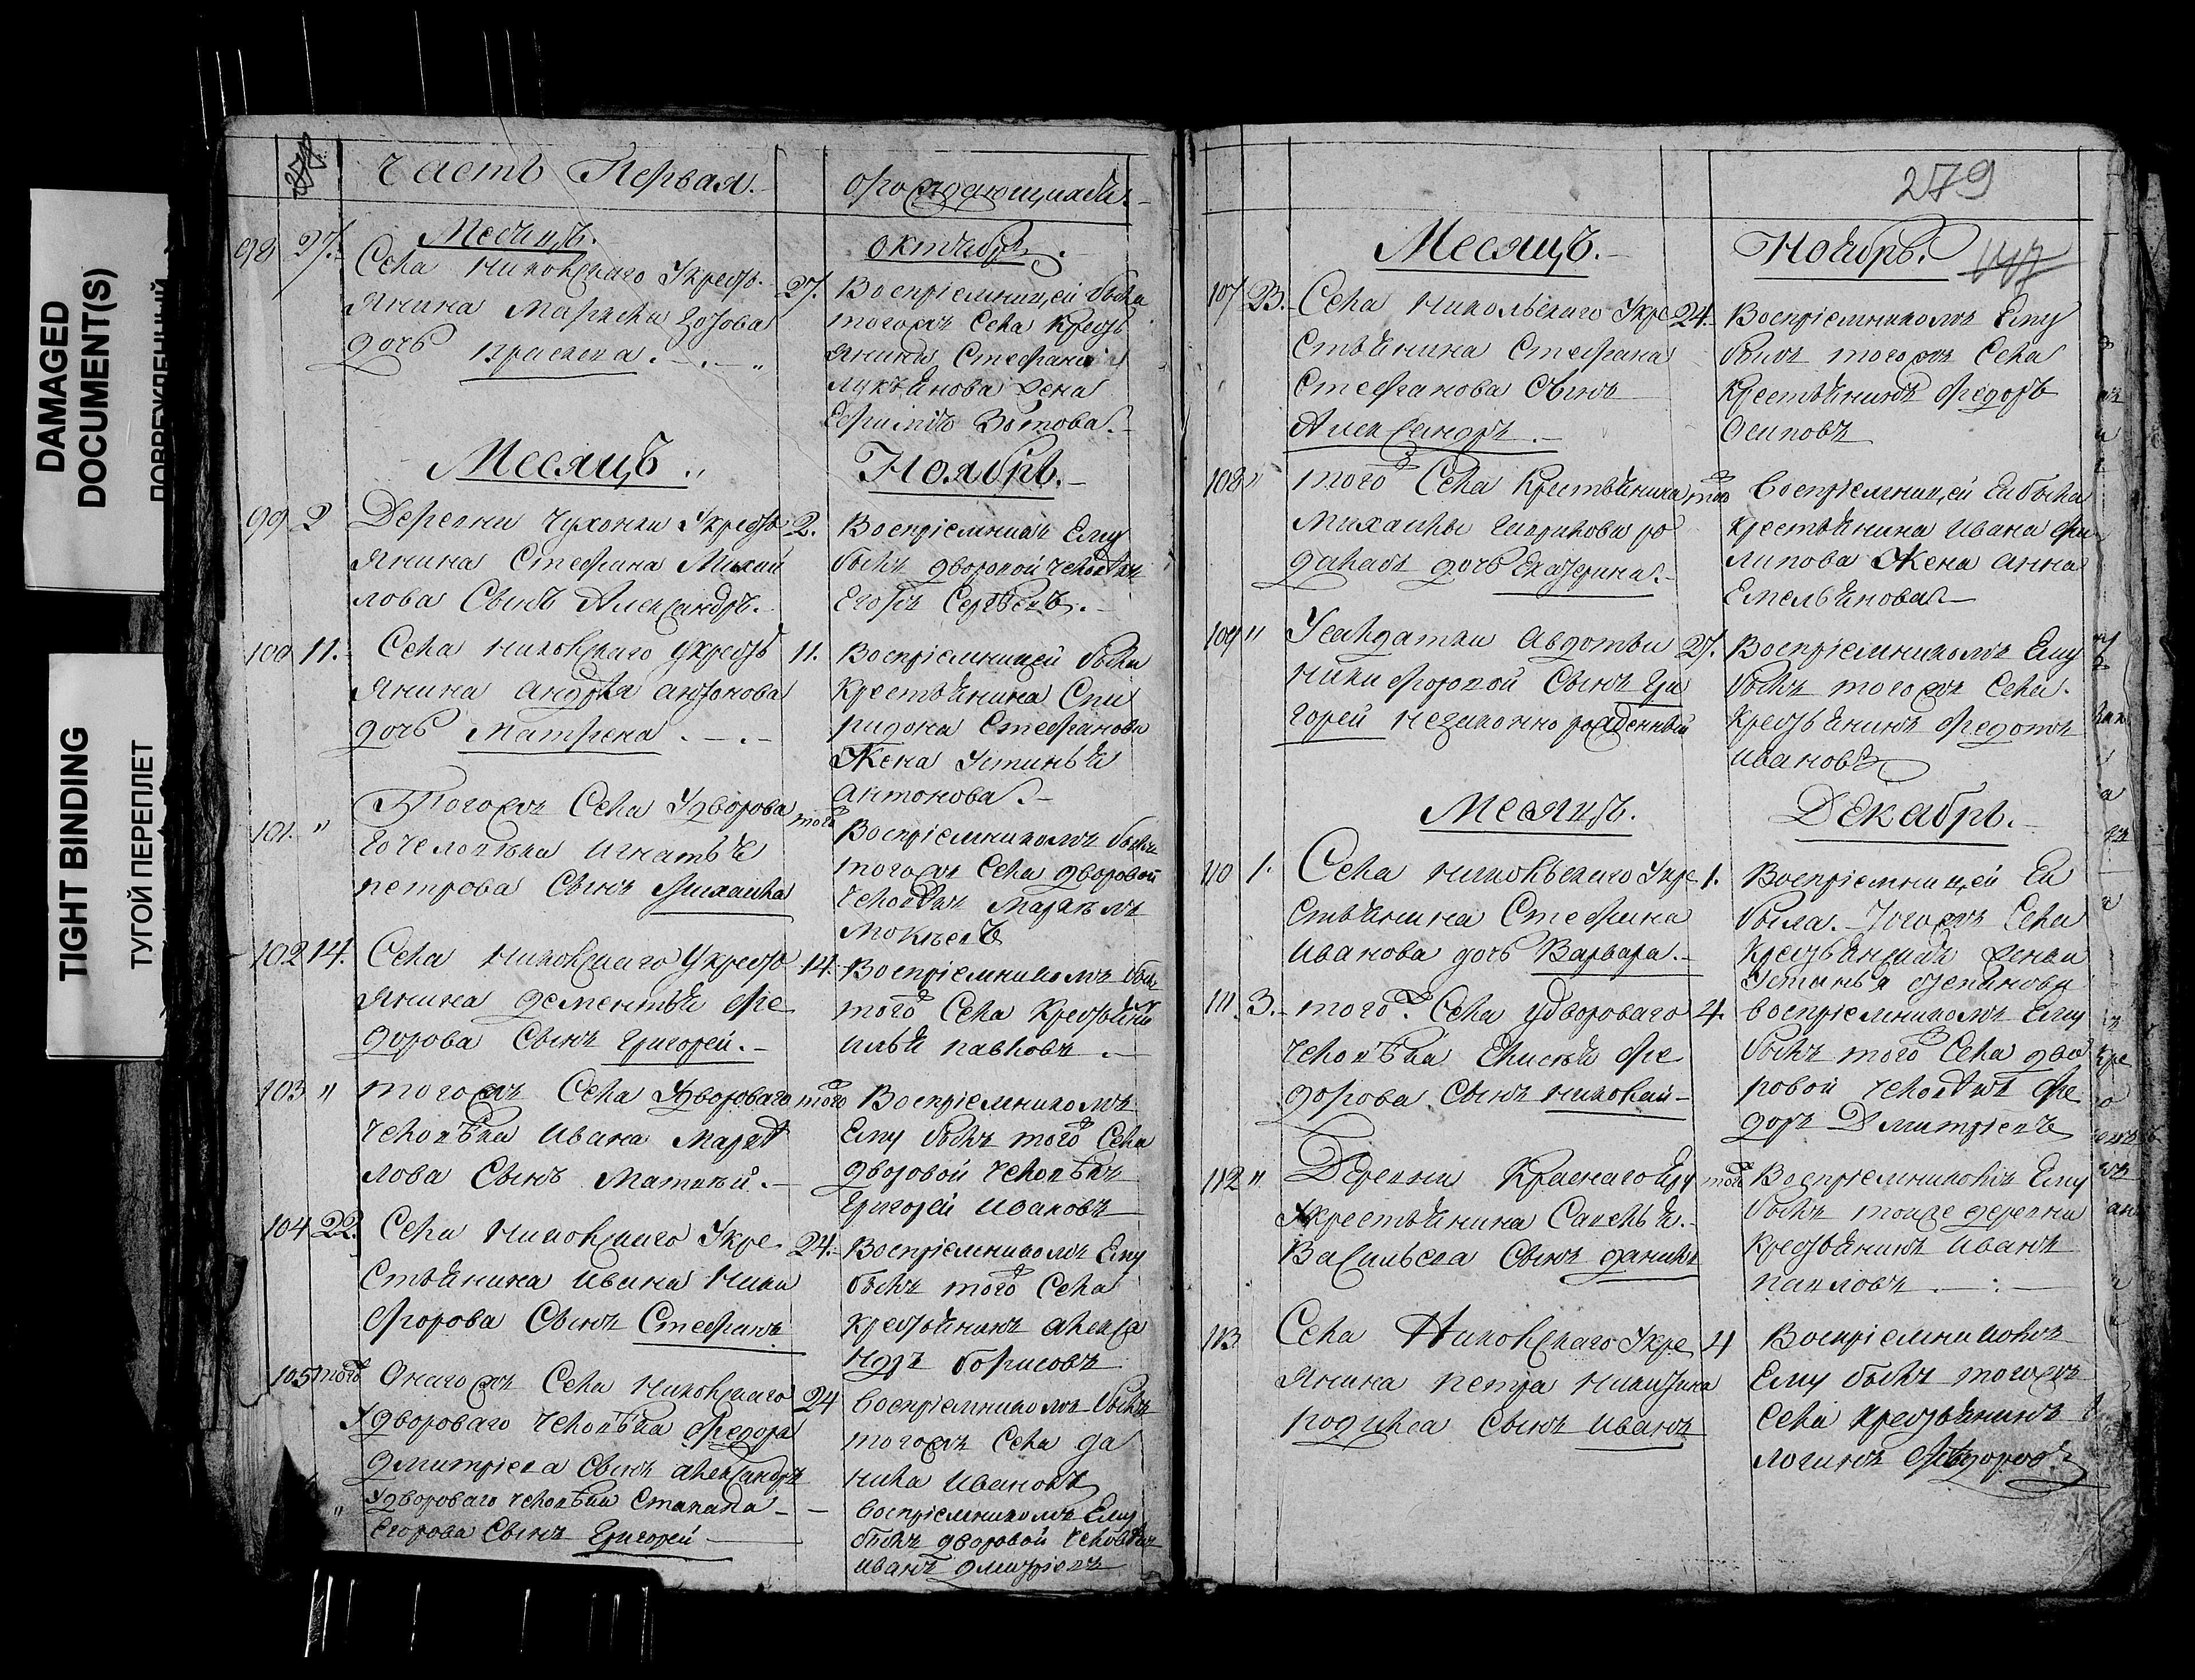 DAMAGED
DOCUMENT(S)
TIGHT BINDING
ТУГОЙ ПЕРЕПЛЕТ
Часть Первая.
о рождающихся.
Месяцъ.
октября.
98 27. Села никольскаго У кресть
янина
дочь
27. Воспріемницей была
тогожъ Села кресть
янина Стефана
лукьянова жена
Зотова.
Месяцъ.
Ноябрь.
99 2 Деревни чухонки У кресть
янина Стефана Михай
лова Сынъ Александръ.
2. Воспріемникъ Ему
былъ дворовой человѣкъ
Егоръ Сергѣевъ.
100 11. Села никольскаго У кресть
янина андрѣя антонова
дочь матрена.
11. Воспріемницей была
крестьянина Спи
ридона Стефанова
Жена устинья
антонова.
101. " Тогожъ Села У дворова
го человѣка игнатья
петрова Сынъ михаила
тогож Воспріемникомъ былъ
тогожъ Села дворовой
человѣкъ
102 14. Села никольскаго У кресть
янина дементья фе
дорова Сынъ григорей.
14. Воспріемникомъ бы
того ж Села крестьяни
илья павловъ.
103 " тогожъ Села У двороваго
человѣка ивана
лова Сынъ Матвѣй.
того ж Воспріемникомъ
Ему былъ того ж Села
дворовой человѣкъ
григорей ивановъ
104 22. Села никольскаго У кре
стьянина ивана ники
форова Сынъ Стефанъ
24. Воспріемникомъ Ему
былъ того ж Села
крестьянинъ алекса
ндръ борисовъ
105 того ж Онагожъ Села никольскаго
У двороваго человѣка федора
дмитріева Сынъ александръ
24 воспріемникомъ былъ
тогожъ Села да
нила ивановъ
" У двороваго человѣка Стапана
Егорова Сынъ григорей
воспріемникомъ Ему
былъ дворовой человѣкъ
иванъ дмитріевъ
279
Месяцъ.
Ноябрь.
107 23. Села никольскаго У кре
стьянина Стефана
Стефанова Сынъ
Александръ.
24. Воспріемникомъ Ему
былъ тогожъ Села
крестьянинъ федоръ
Осиповъ
108 " того ж Села крестьянина
Михаилы гаврилова ро
дилась дочь Екатерина.
того ж воспріемницей Ей была
крестьянина ивана фи
липова Жена анна
Емельянова
109 " У салдатки авдотьи
никифоровой Сынъ гри
горей незаконно рожденный
27. Воспріемникомъ Ему
былъ тогожъ Села
крестьянинъ федотъ
ивановъ
Месяцъ.
Декабрь.
110 1. Села никольскаго У кре
стьянина Стефана
иванова дочь Варвара.
1. Воспріемницей Ей
была тогожъ Села
жена
Устинья степанова
111. 3. того ж Села У двороваго
человѣка Елисѣя фе
дорова Сынъ николай
4. воспріемникомъ Ему
былъ того ж Села дво
ровой человѣкъ фе
доръ Дмитріевъ
112 " Деревни Краснаго
У крестьянина Савелья
Васильева Сынъ данила
того ж Воспріемникомъ Ему
былъ тоиже деревни
крестьянинъ иванъ
павловъ
113 Села Никольскаго У кре
янина петра никитина
родился Сынъ иванъ
4 Воспріемникомъ
Ему былъ тогожъ
Села крестьянинъ
логинъ Федоровъ